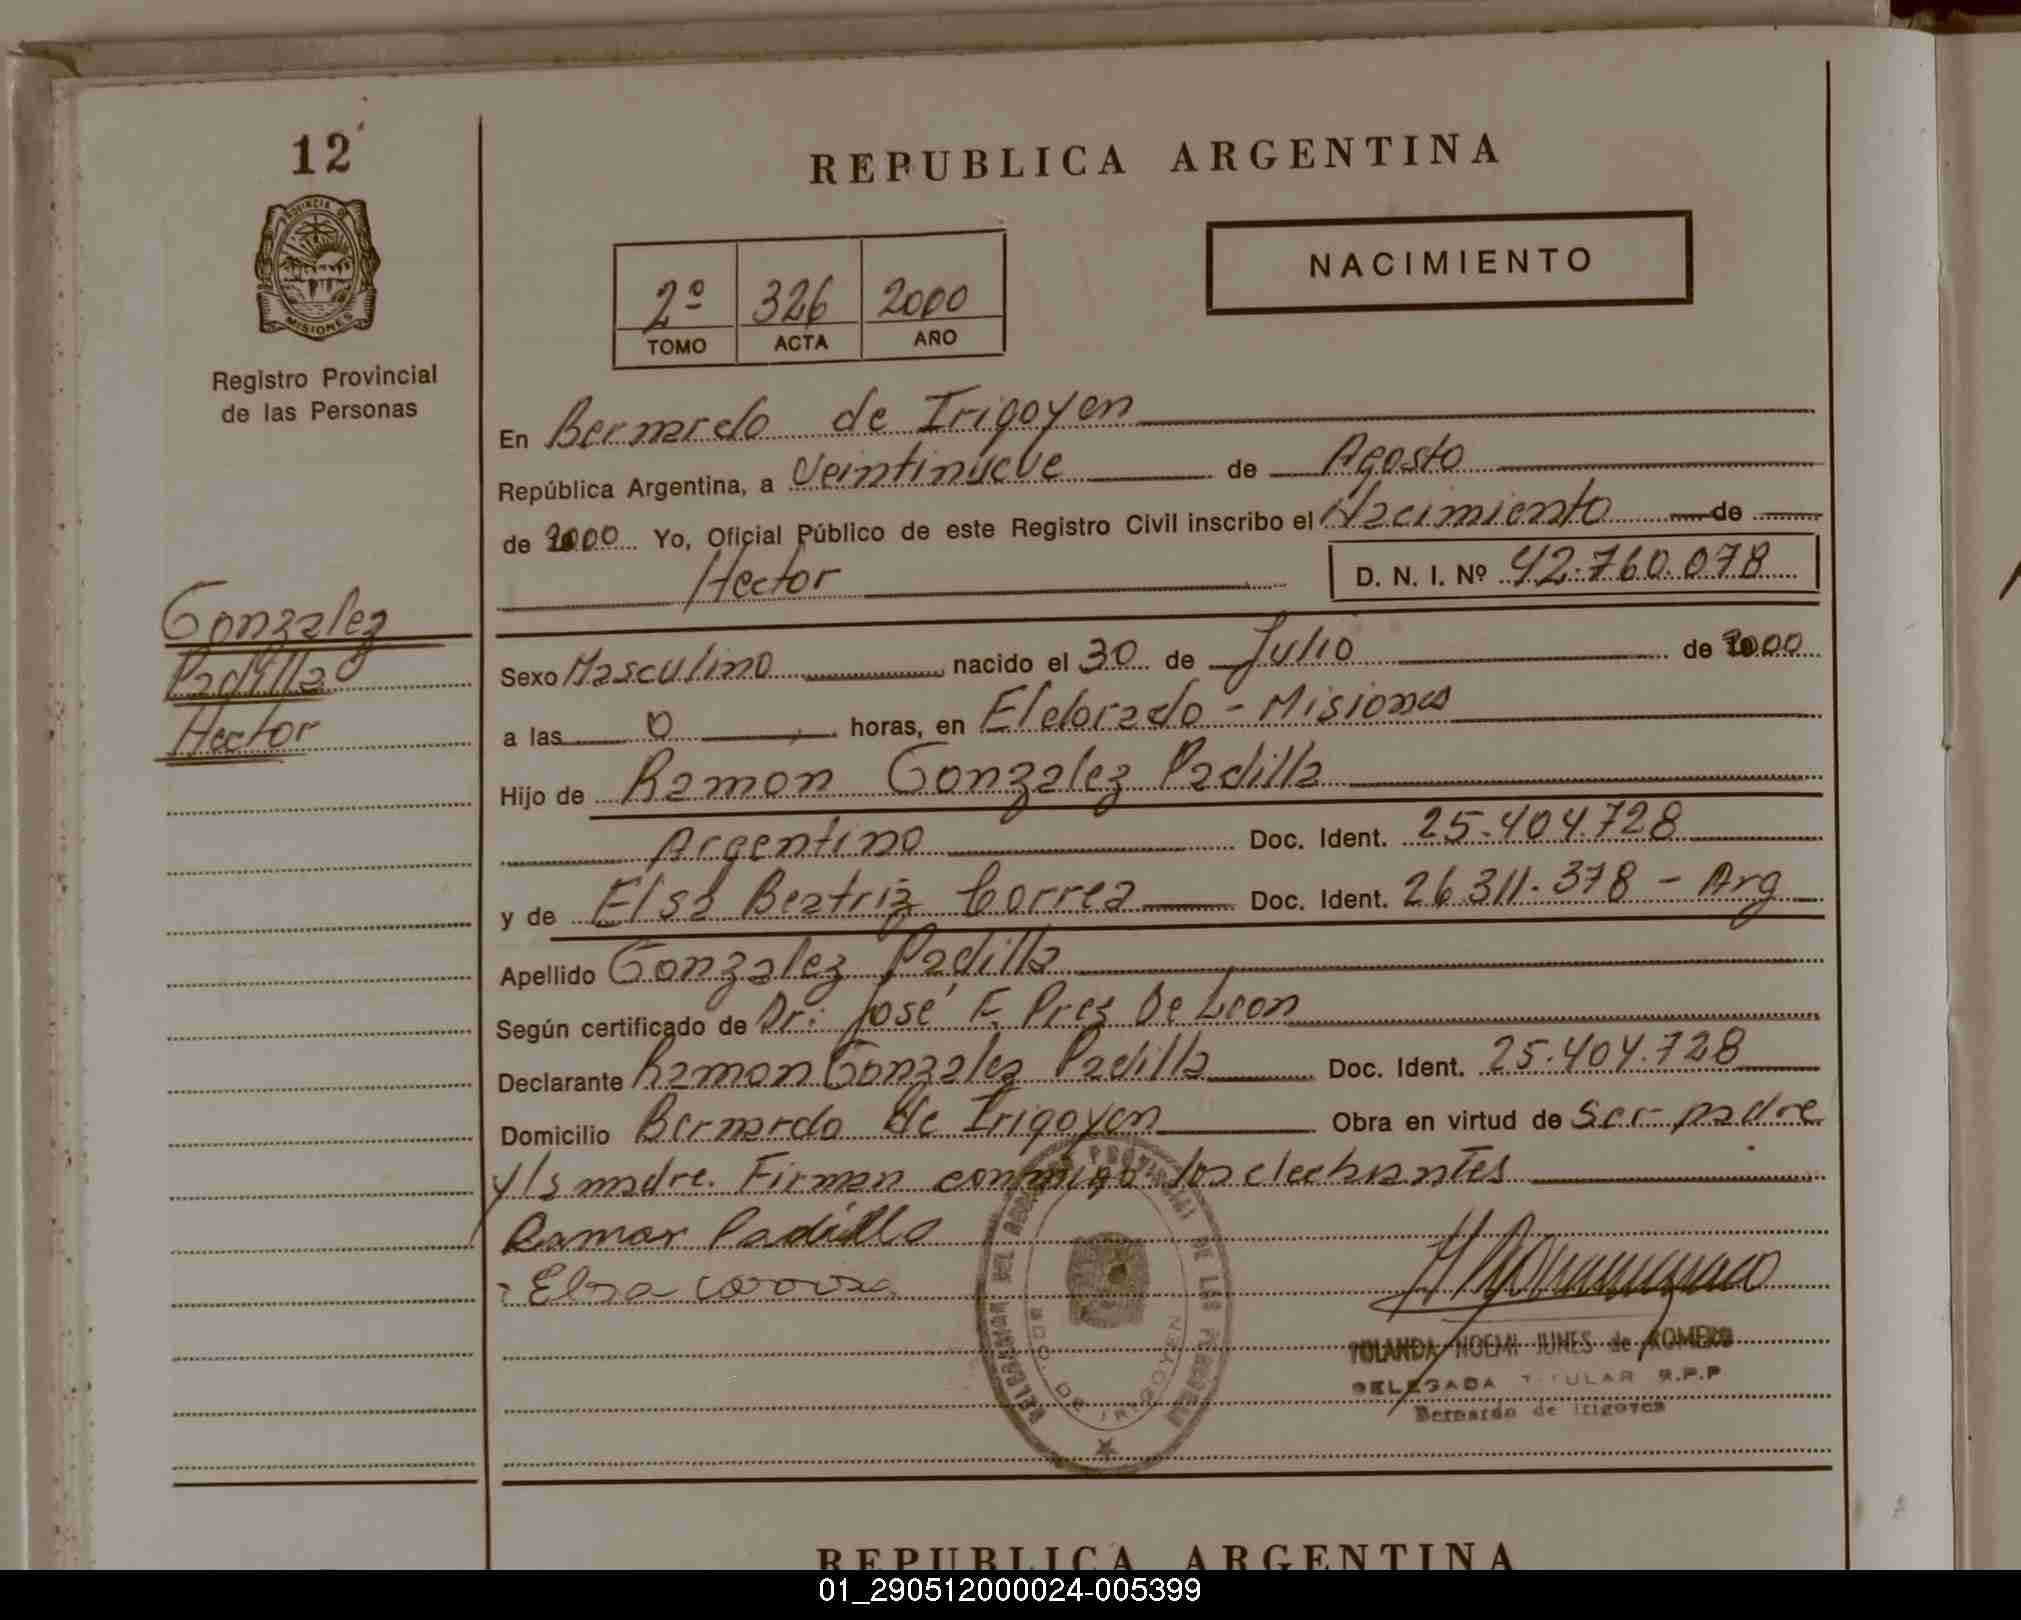 12
PROVINCIA DE
MISIONES
Registro Provincial
de las Personas
Gonzalez
Padilla
Hector
REPUBLICA ARGENTINA
NACIMIENTO
2º 326 2000
TOMO ACTA AÑO
En Bernardo de Irigoyen
República Argentina, a Veintinueve de Agosto
de 2000 Yo, Oficial Público de este Registro Civil inscribo el Nacimiento de
Hector D. N. I. Nº 42.760.078
Sexo Masculino nacido el 30 de Julio de 2000
a las 0 horas, en Eldorado - Misiones
Hijo de Ramon Gonzalez Padilla
Argentino Doc. Ident. 25.404.728
y de Elsa Beatriz Correa Doc. Ident. 26.311.378 - Arg
Apellido Gonzalez Padilla
Según certificado de Dr. José F. Prez De Leon
Declarante Ramon Gonzalez Padilla Doc. Ident. 25.404.728
Domicilio Bernardo de Irigoyen Obra en virtud de ser padre
y la madre. Firman conmigo los declarantes
Ramon Padilla
Elsa Correa
DELEGACION DEL REGISTRO PROVINCIAL DE LAS PERSONAS
BDO. DE IRIGOYEN
YOLANDA NOEMI JUNES de ROMERO
DELEGADA TITULAR R.P.P
Bernardo de Irigoyen
REPUBLICA ARGENTINA
01_290512000024-005399